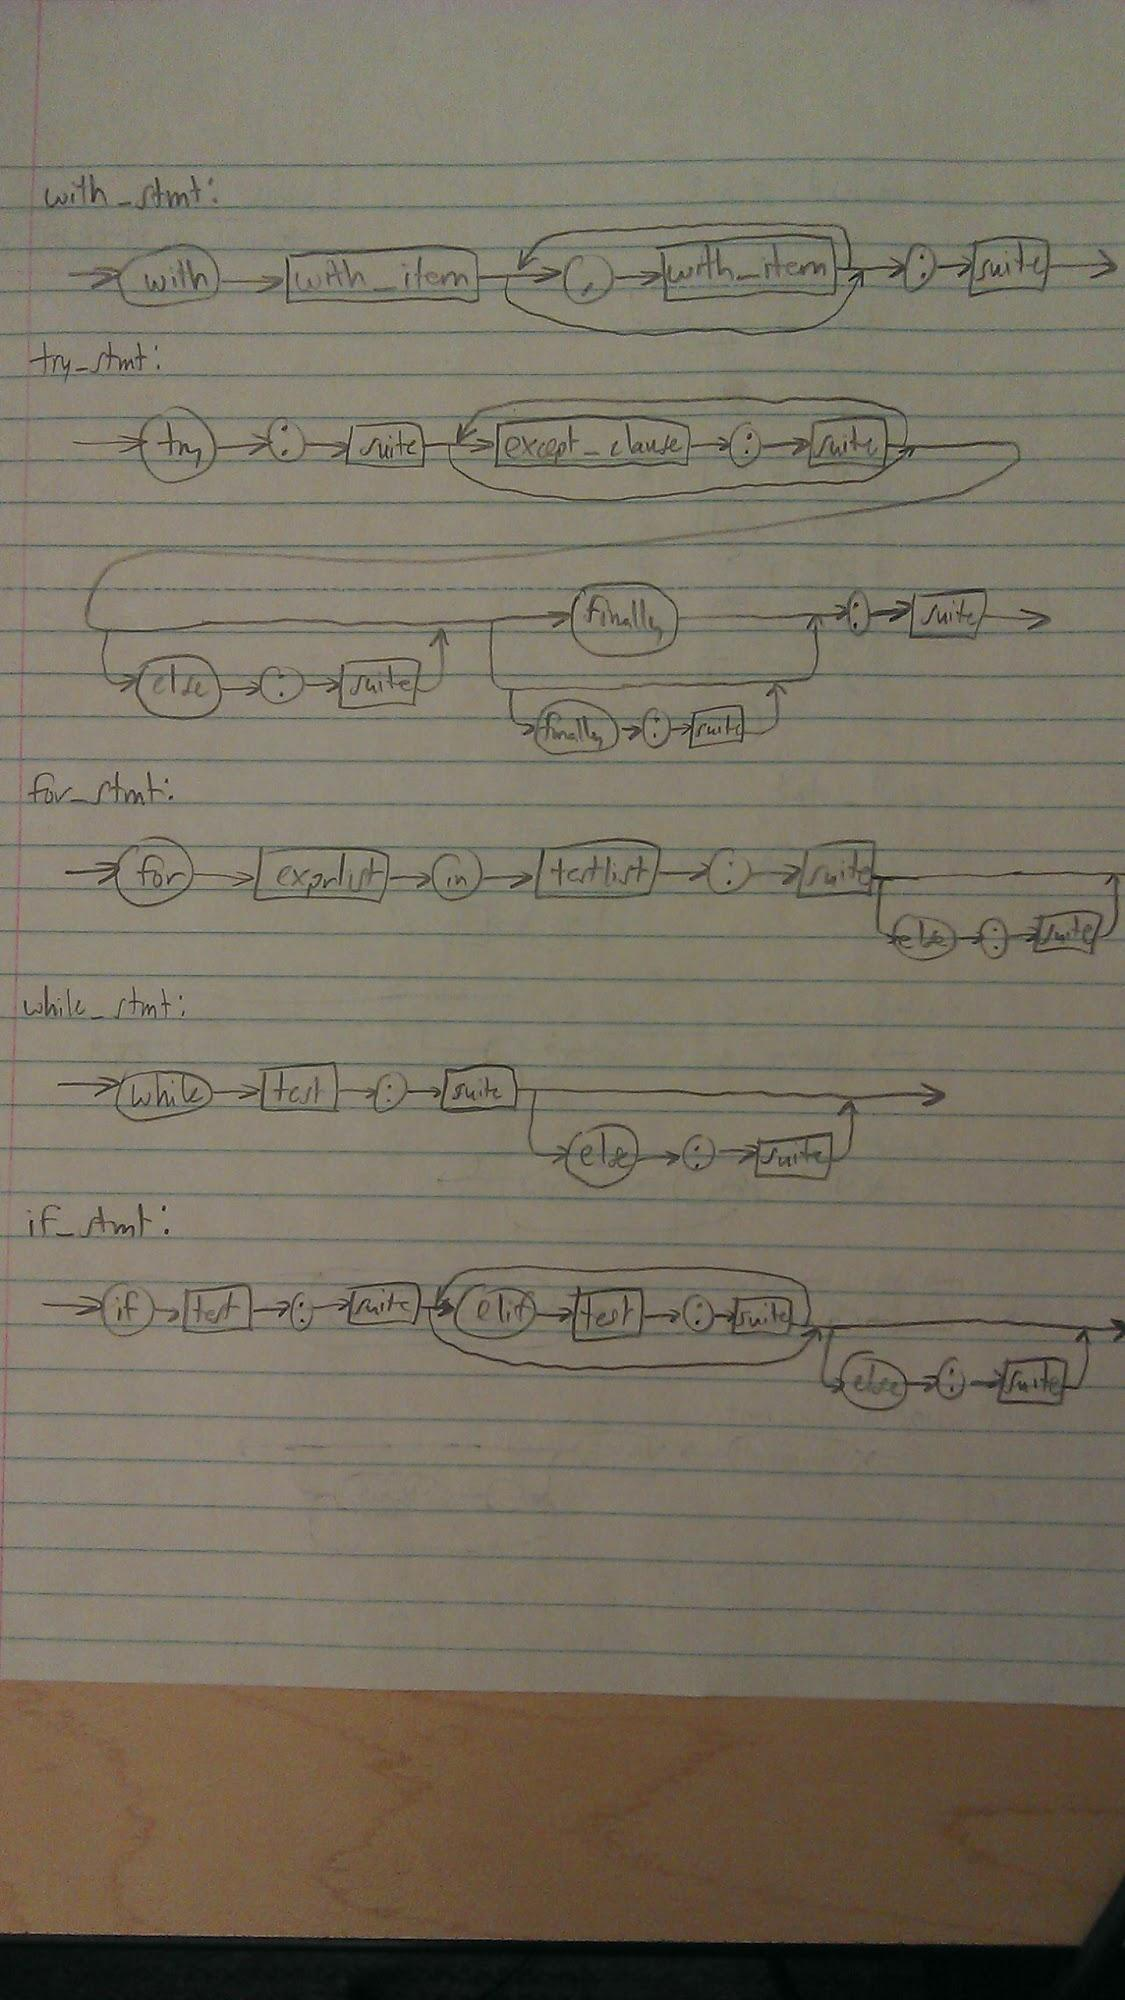 with_stmt:
with with_item , with_item : suite
try_stmt:
try : suite except_clause : suite
finally : suite
else : suite
finally : suite
for_stmt:
for exprlist in testlist : suite
else : suite
while_stmt:
while test : suite
else : suite
if_stmt:
if test : suite elif test : suite
else : suite